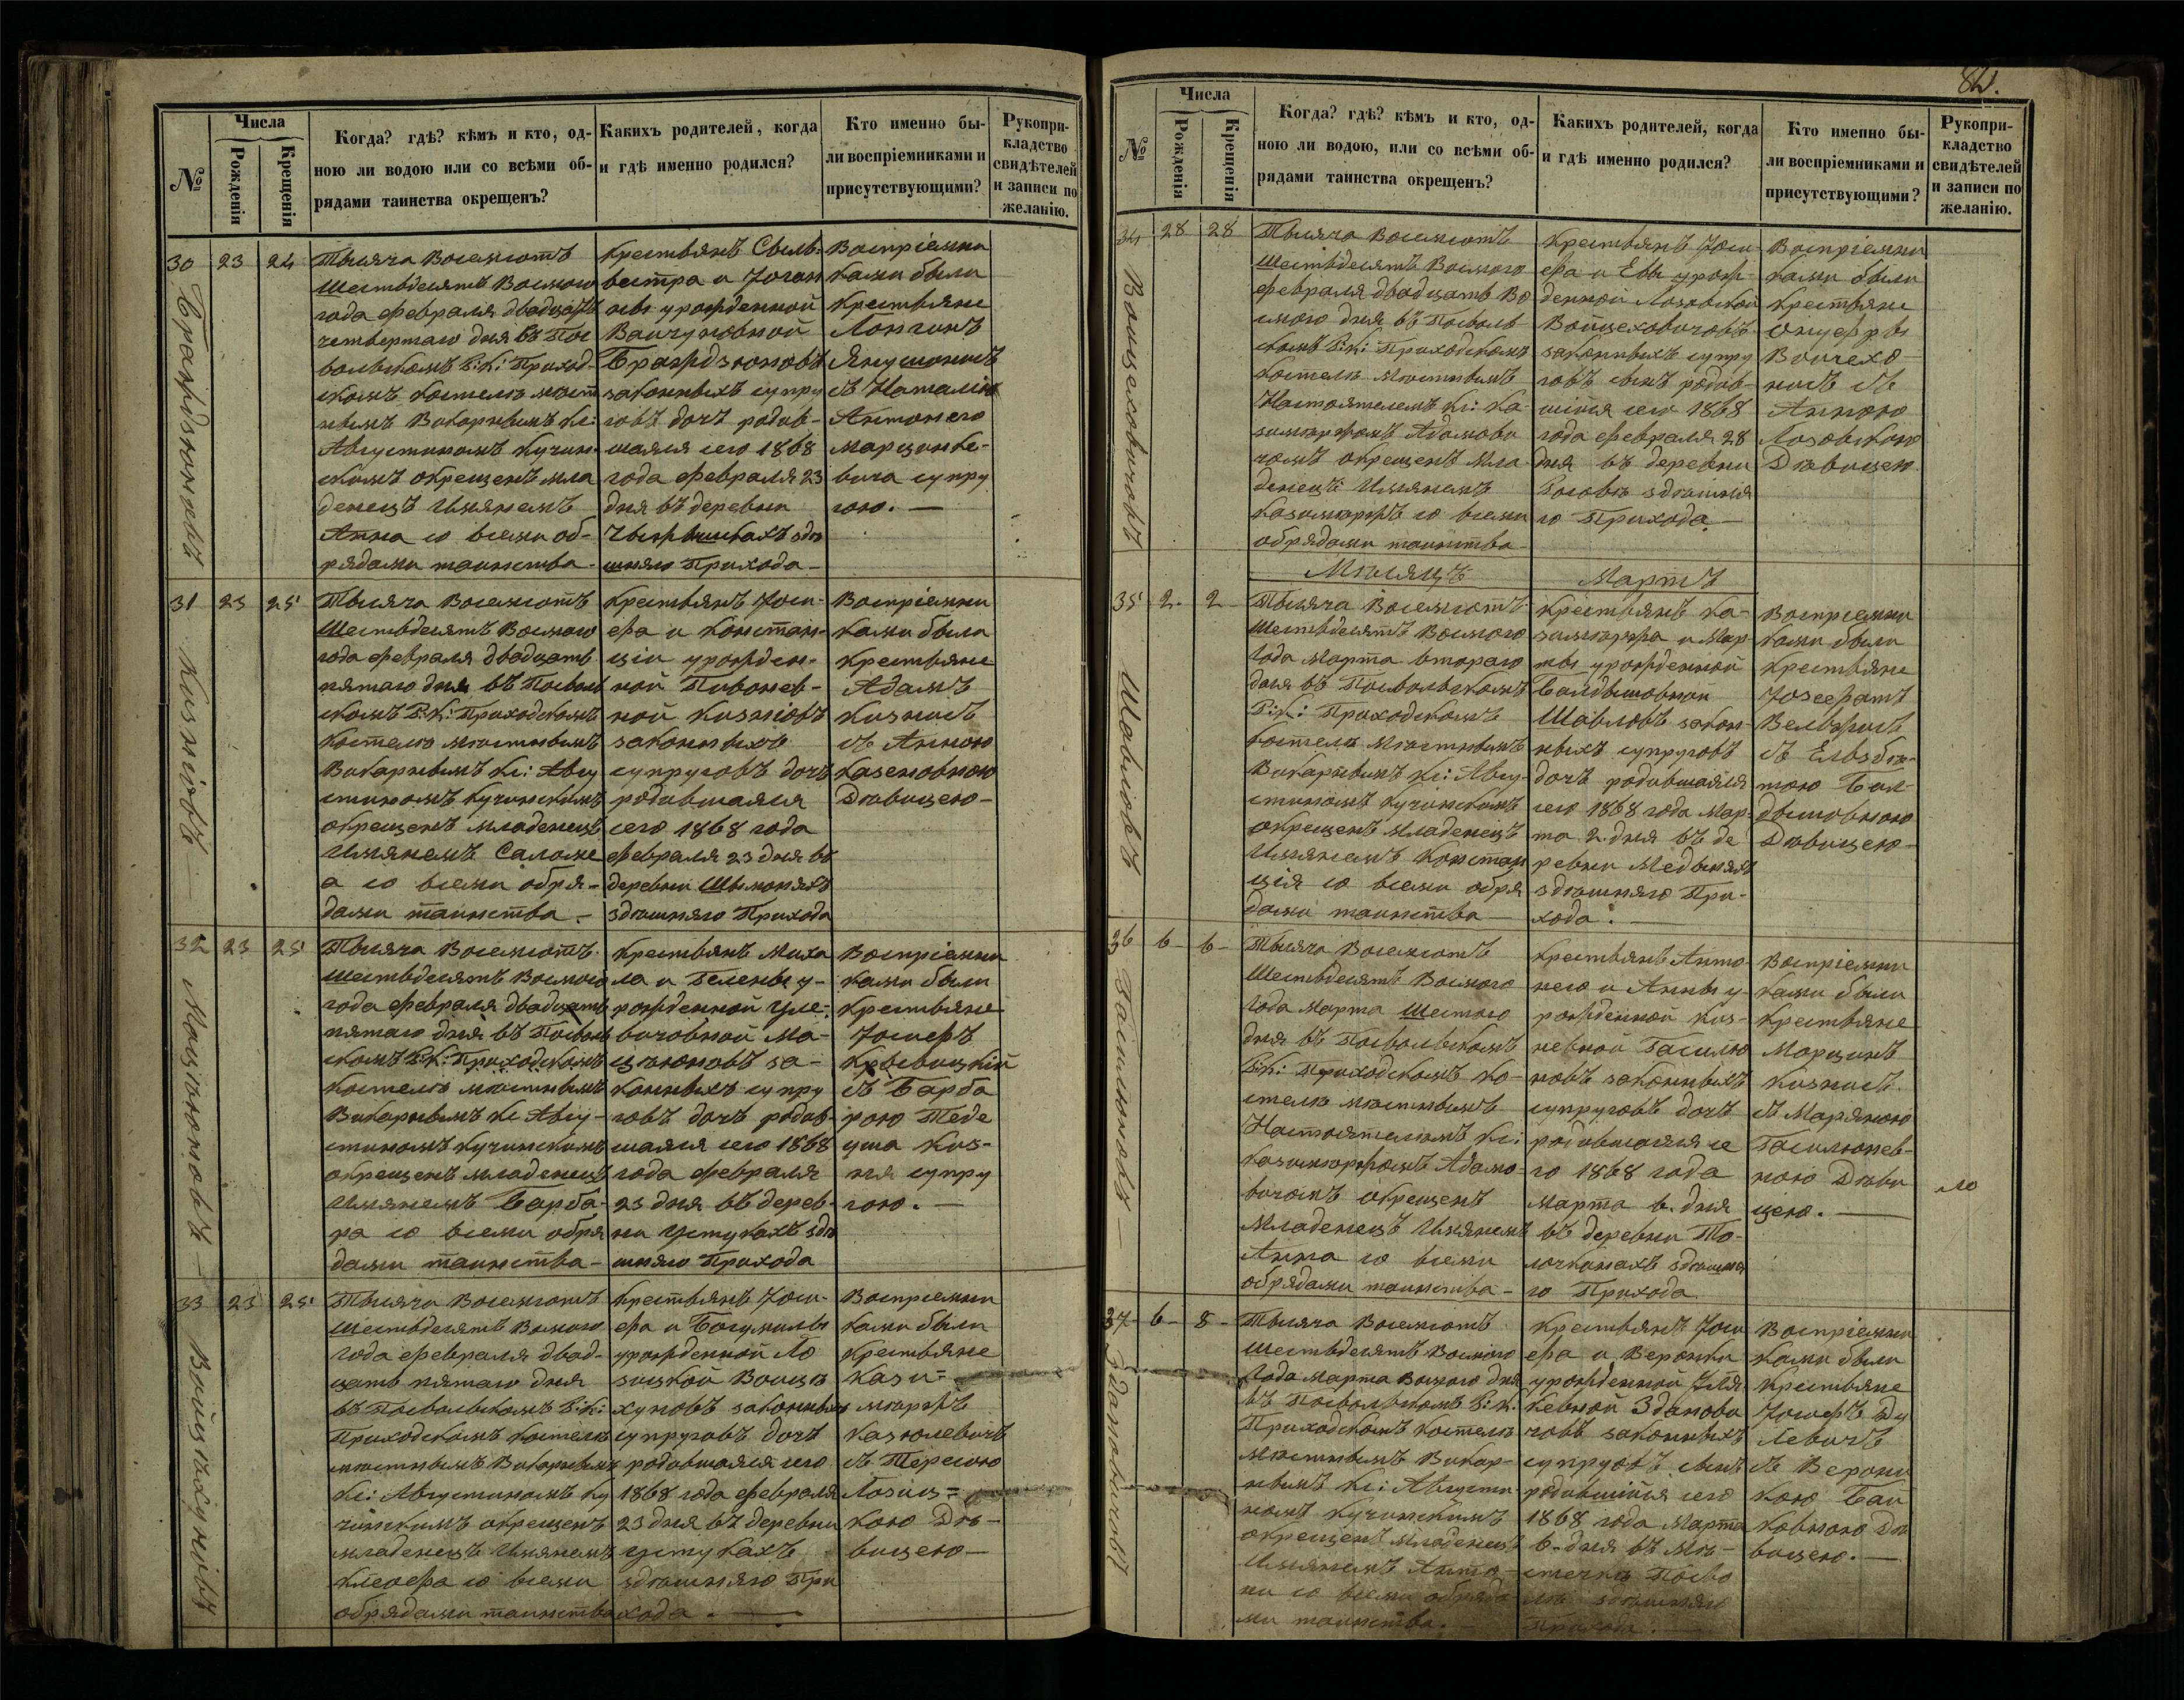 №
Числа
Рожденія
Крещенія
Когда? гдѣ? кѣмъ и кто, од-
ною ли водою или со всѣми об-
рядами таинства окрещенъ?
Какихъ родителей, когда
и гдѣ именно родился?
Кто именно бы-
ли воспріемниками и
присутствующими?
Рукопри-
кладство
свидѣтелей
и записи по
желанію.
30
23
24
Тысяча Восемсотъ
шестьдесятъ Восмого
года февраля двадцать
четвертаго дня въ Пос
вольскомъ Р:К: Приход-
скомъ костелѣ мѣст
нымъ Викарнымъ Кс:
Августиномъ Кучин-
скимъ окрещенъ мла
денецъ Имянемъ
Анна со всеми об-
рядами таинства-
Крестьянъ Сыль-
вестра и Іоган
ны урожденной
Браждзюновъ
законныхъ супру
говъ дочь родив-
шаяся сего 1868
года февраля 23
дня въ деревни
здѣ
шняго Прихода-
Воспріемни
ками были
Крестьяне
Лонгинъ
Янушонисъ
съ Наталію
Антонего
Марцинке-
вича супру
гою.-
31
23
25
Кизнісвъ
Тысяча Восемсотъ
Шестьдесятъ Восмого
года февраля двадцать
пятаго дня въ Посволь
скомъ Р:К: Приходскомъ
костелѣ мѣстнымъ
Викарнымъ Кс: Авгу
стиномъ Кучинскимъ
окрещенъ младенецъ
Имянемъ Саломе
а со всеми обря-
дами таинства.-
Крестьянъ Іоси-
фа и Констан-
ціи урожден-
ной Пивонев-
ной Кизнісвъ
законныхъ
супруговъ дочь
родившаяся
сего 1868 года
февраля 23 дня въ
деревни Шимоняхъ
здѣшняго Прихода
Воспріемни
ками были
Крестьяне
Адамъ
Кизнисъ
съ Анною
Казеновною
Дѣвицею-
32
23
25
Мацюкотовъ
Тысяча Восемсотъ
шестьдесятъ Восмого
года февраля двадцать
пятаго дня въ Посволь
скомъ Р:К: Приходскомъ
костелѣ мѣстнымъ
Викарнымъ Кс Авгу-
стиномъ Кучинскимъ
окрещенъ младенецъ
Имянемъ Барба-
ра со всеми обря
дами таинства-
Крестьянъ Миха
ла и Гелены у-
рожденной
законныхъ супру
говъ дочь родив-
шаяся сего 1868
года февраля
23 дня въ дерев-
ни Устукахъ здѣ
шняго Прихода
Воспріемни
ками были
Крестьяне
Іосифъ
съ Барба
рою Таде
уша Киз-
ня супру
гою.-
33
23
25
Войцѣхуновъ
Тысяча Восемсотъ
шестьдесятъ Восмого
года февраля двад-
цать пятаго дня
въ Посвольскомъ Р:К:
Приходскомъ костелѣ
мѣстнымъ Викарнымъ
Кс: Августиномъ Ку
чинскимъ окрещенъ
младенецъ Имянемъ
Клеофа со всеми
обрядами таинства
Крестьянъ Іоси-
фа и Богумилы
урожденной Ло
зицкой Войцѣ
хуновъ законныхъ
супруговъ дочь
родившаяся сего
1868 года февраля
23 дня въ деревни
Устукахъ
здѣшняго При
хода.-
Воспріемни
ками были
Крестьяне
Кази-
міржъ
Казюлевичъ
съ Тересою
Лозиц-
кою Дѣ-
вицею-
№
Числа
Рожденія
Крещенія
Когда? гдѣ? кѣмъ и кто, од-
ною ли водою, или со всѣми об-
рядами таинства окрещенъ?
Какихъ родителей, когда
и гдѣ именно родился?
Кто именно бы-
ли воспріемниками и
присутствующими?
Рукопри-
кладство
свидѣтелей
и записи по
желанію.
34
28
28
Войцеховичовъ
Тысяча Восемсотъ
шестьдесятъ Восмого
февраля двадцать Во
смого дня въ Посволь
скомъ Р:К: Приходскомъ
костелѣ мѣстнымъ
Настоятелемъ Кс: Ка-
зимиржомъ Адамови
чомъ окрещенъ мла
денецъ Имянемъ
Казимиржъ со всеми
обрядами таинства-
Крестьянъ Іоси
фа и Евы урож
денной Лозовской
Войцеховичовъ
законныхъ супру
говъ сынъ родив-
шійся сего 1868
года февраля 28
дня въ деревни
здѣшня
го Прихода-
Воспріемни
ками были
Крестьяне
съ
Анною
Лозовскою
Дѣвицею.
Мѣсяцъ Мартъ
35
2
2
Шавловъ
Тысяча Восемсотъ
Шестьдесятъ Восмого
Года Марта втораго
дня въ Посвольскомъ
Р:К: Приходскомъ
костелѣ мѣстнымъ
Викарнымъ Кс: Авгу-
стиномъ Кучинскимъ
окрещенъ младенецъ
Имянемъ Констан
ція со всеми обря
дами таинства-
Крестьянъ Ка-
зимиржа и Мар
ты урожденной
Шавловъ закон
ныхъ супруговъ
дочь родившаяся
сего 1868 года Мар-
та 2. дня въ де
ревни
здѣшняго При-
хода.-
Воспріемни
ками были
Крестьяне
Іозефатъ
съ Ельзбѣ-
тою
Дѣвицею-
36
6
6
Гасилюновъ
Тысяча Восемсотъ
Шестьдесятъ Восмого
Года Марта Шестого
дня въ Посвольскомъ
Р:К: Приходскомъ Ко-
стелѣ мѣстнымъ
Настоятелемъ Кс:
Казимиржомъ Адамо-
вичомъ окрещенъ
Младенецъ Имянемъ
Анна со всеми
обрядами таинства-
Крестьянъ Анто-
него и Анны у-
рожденной Киз-
невной Гасилю
новъ законныхъ
супруговъ дочь
родившаяся се
го 1868 года
Марта 6. дня
въ деревни
здѣшня
го Прихода.
Воспріемни
ками были
Крестьяне
Марцинъ
Кизнисъ
съ Маряною
Гасилюнев-
ною Дѣви
цею.-
37
6
8
Здановичовъ
Тысяча Восемсотъ
шестьдесятъ Восмого
Года Марта Восмого дня
въ Посвольскомъ Р:К:
Приходскомъ костелѣ
мѣстнымъ Викар-
нымъ Кс: Августи
номъ Кучинскимъ
окрещенъ младенецъ
Имянемъ Анто-
ни со всеми обряда-
ми таинства.
Крестьянъ Іоси
фа и Вероники
урожденной
Здановичовъ
законныхъ
супруговъ сынъ
родившійся сего
1868 года Марта
6. дня въ Мѣ-
стечкѣ Посво
лѣ здѣшняго
Прихода.-
Воспріемни
ками были
Крестьяне
Іосифъ Ду
левичъ
съ Верони
кою
Дѣ
вицею.-